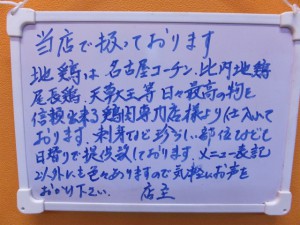 当店で扱っております
地鶏は名古屋コーチン、比内地鶏
尾長鶏、天草大王等日々最高の物を
信頼出来る鶏肉専門店様より仕入れて
おります。刺身など珍らしい部位なども
日替りで提供致しております。メニュー表記
以外にも色々ありますので気軽にお声を
おかけ下さい。 店主